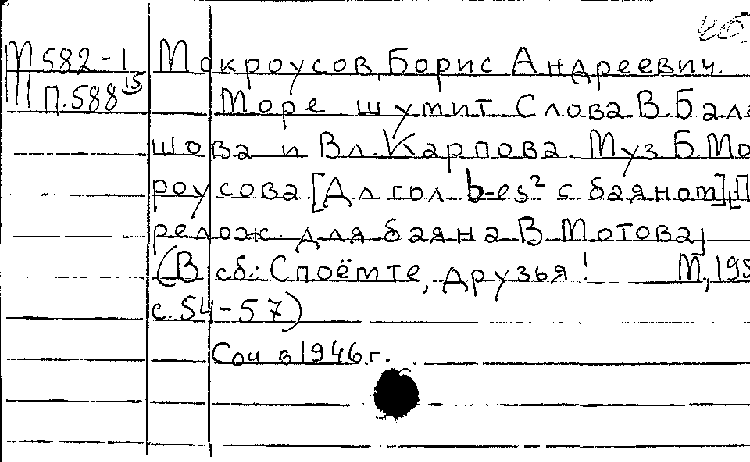 М 582-1 Мокроусов, Борис Андреевич.
III п.588 15 Море шумит Слова В. Бала
шова и Вл. Карпова. Муз Б. Мо
роусова [Дл гол b-es² с баяном].
релож. для баяна В. Мотова,
(В сб.: Споёмте, друзья! М, 195
с. 54-57)
Соч в 1946 г.